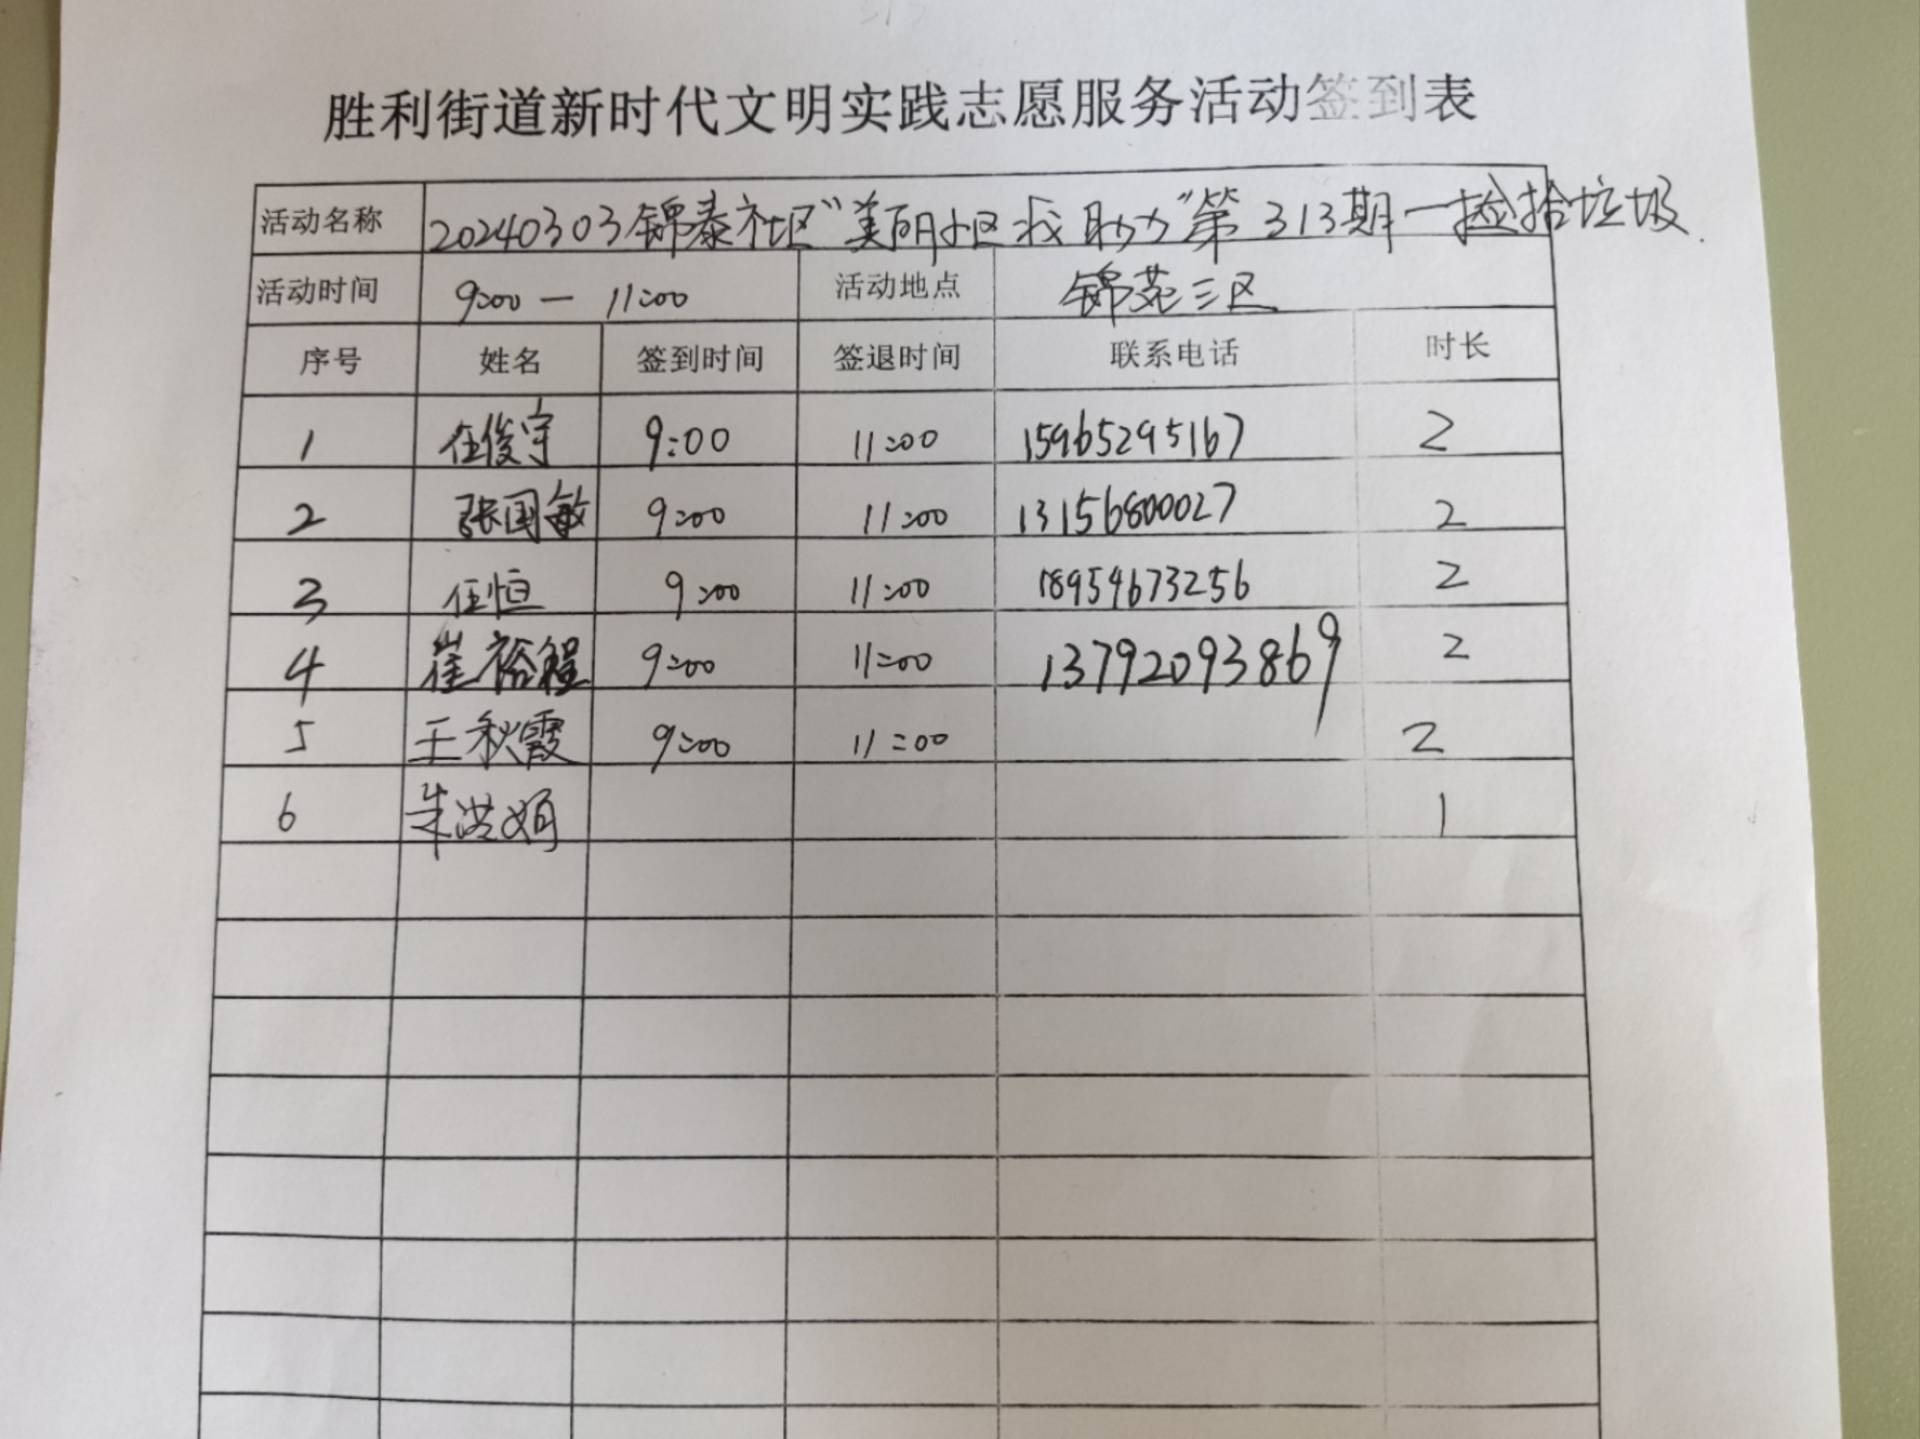 胜利街道新时代文明实践志愿服务活动签到表
活动名称 20240303锦泰社区“美丽小区我助力”第313期—捡拾垃圾
活动时间 9:00 — 11:00 活动地点 锦苑三区
序号 姓名 签到时间 签退时间 联系电话 时长
1 任俊宇 9:00 11:00 15965295167 2
2 张国敏 9:00 11:00 13156800027 2
3 任恒 9:00 11:00 18954673256 2
4 崔裕程 9:00 11:00 13792093869 2
5 王秋霞 9:00 11:00 2
6 朱洪娟 1